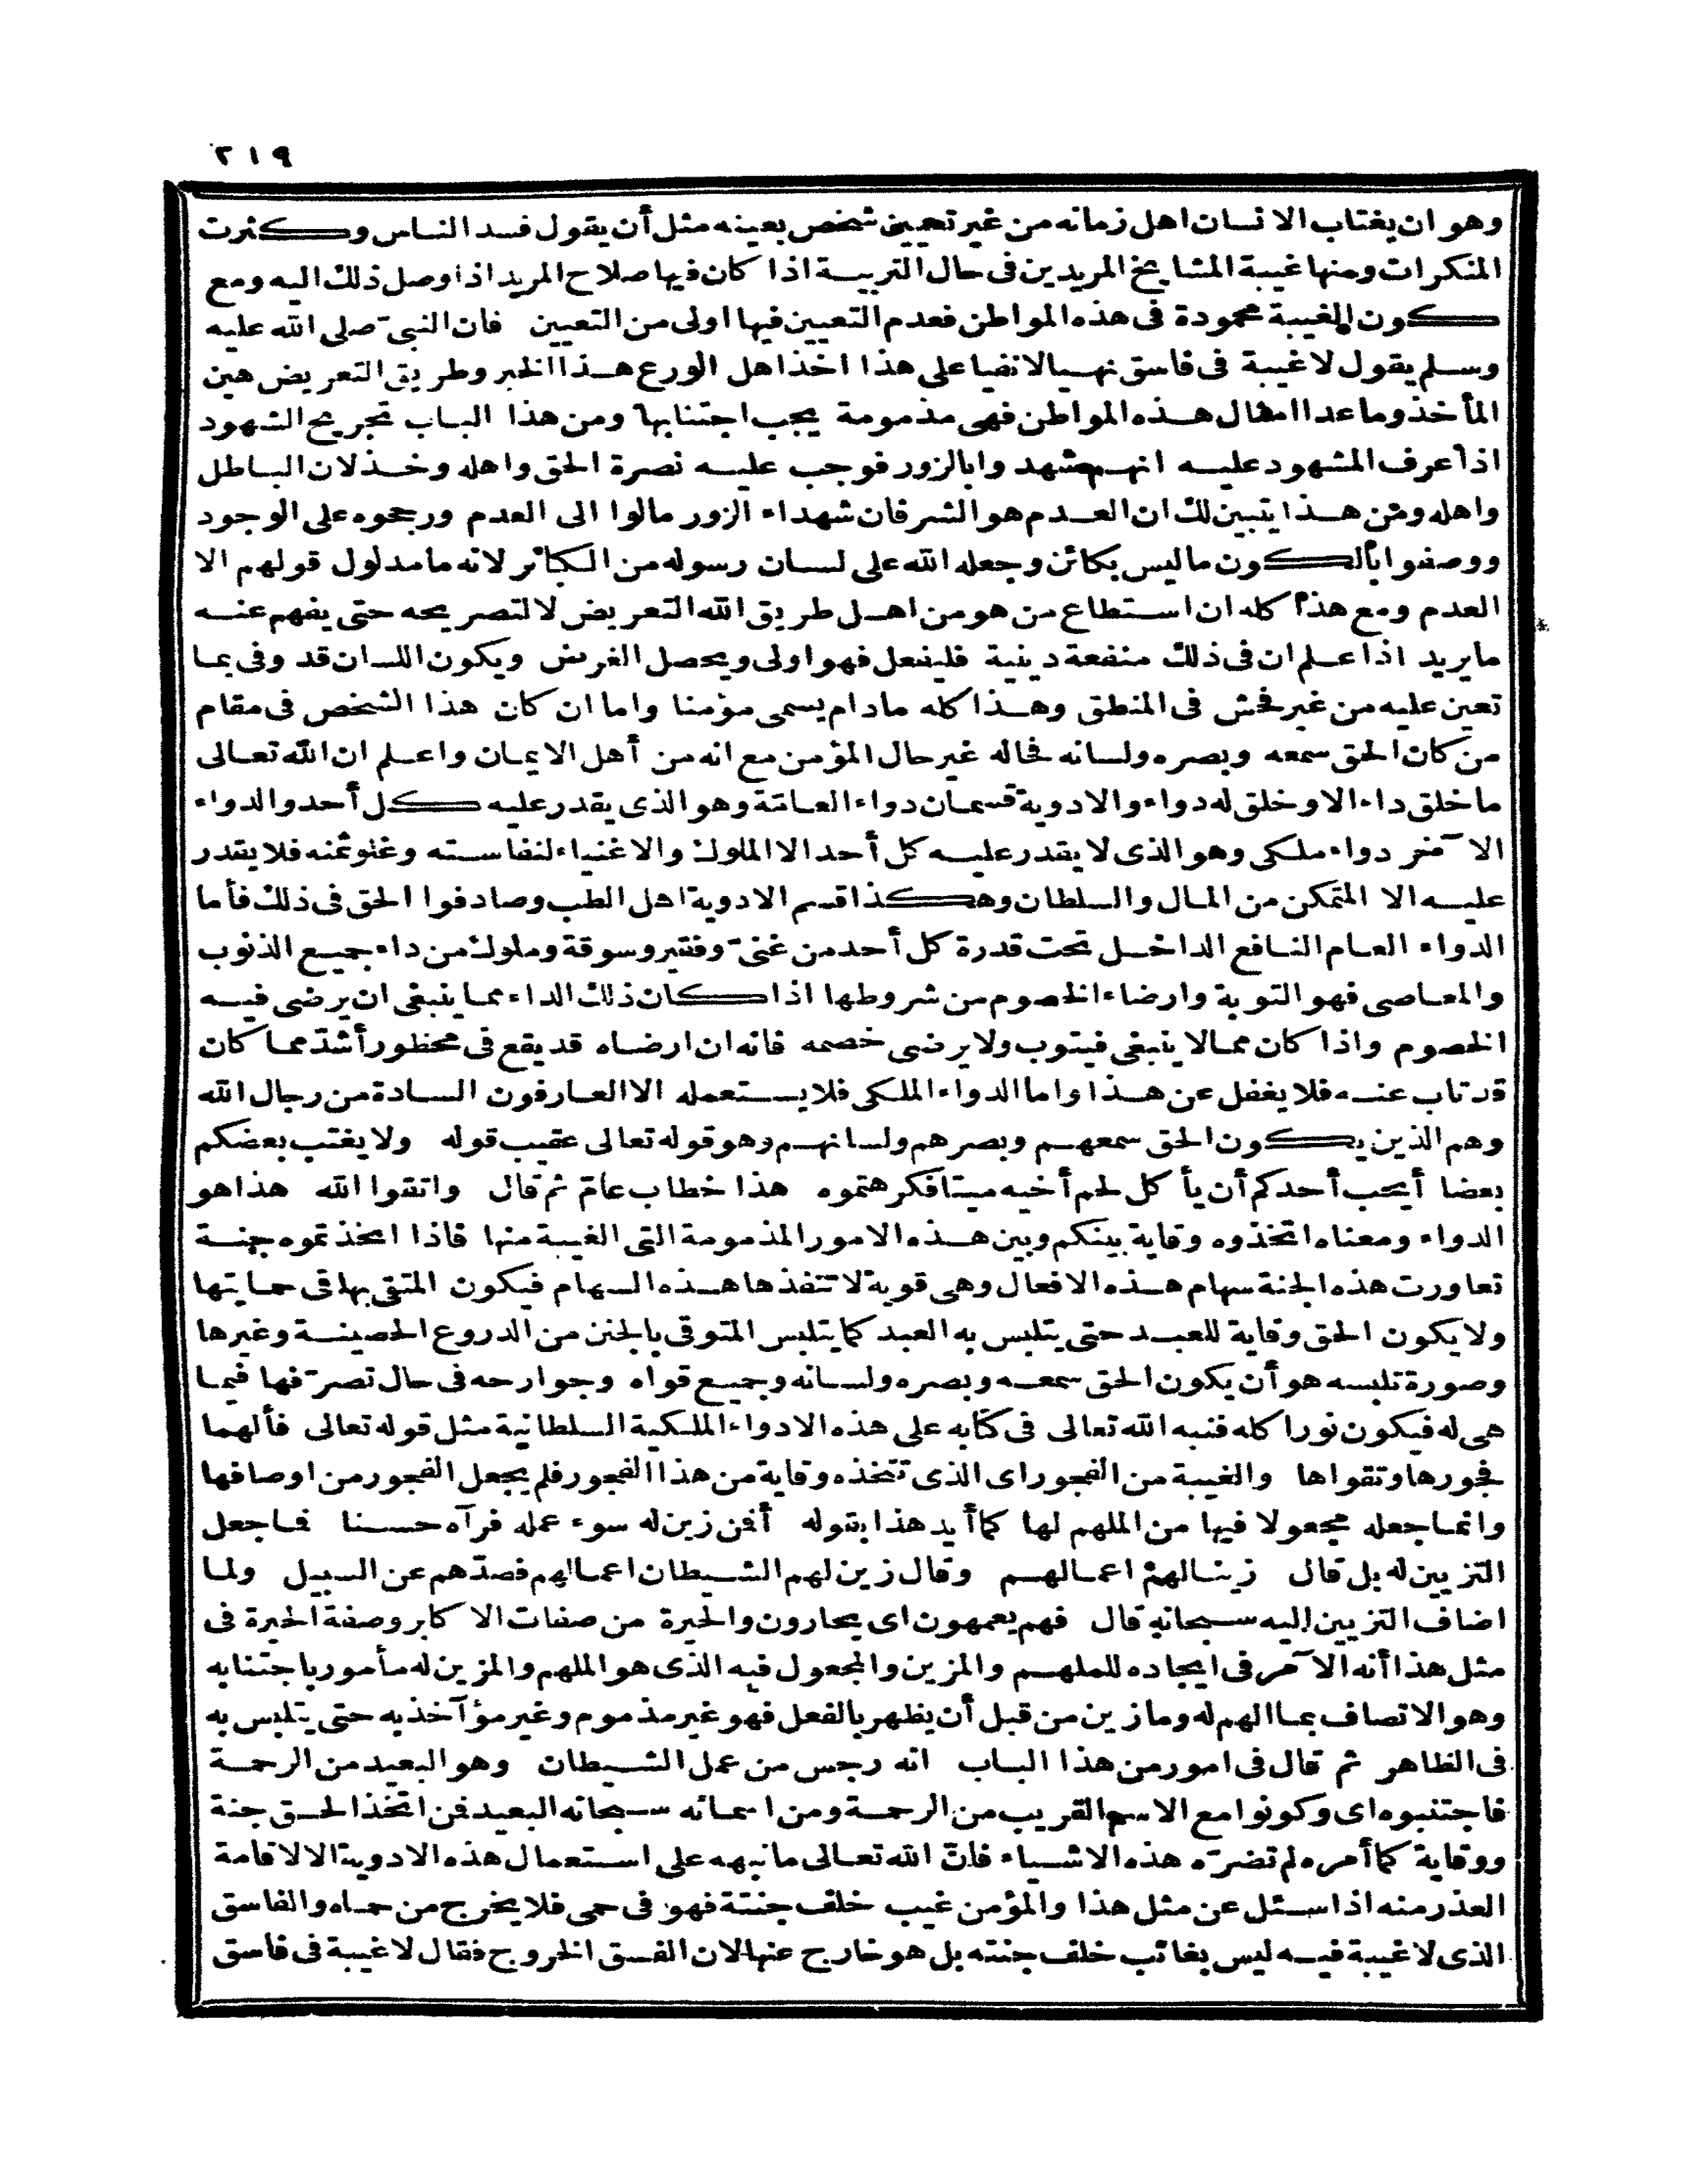 ٢١٩
وهو ان يغتاب الانسان اهل زمانه من غير تعيين شخص بعينه مثل أن يقول فسد الناس وكثرت
المنكرات ومنها غيبة المشايخ المريدين فى حال التربية اذا كان فيها صلاح المريد اذا وصل ذلك اليه ومع
كون الغيبة محمودة فى هذه المواطن فعدم التعيين فيها اولى من التعيين فان النبىّ صلى الله عليه
وسلم يقول لا غيبة فى فاسق نهيا لا نفيا على هذا اخذ اهل الورع هذا الخبر وطريق التعريض هين
المأخذ وما عدا امثال هذه المواطن فهى مذمومة يجب اجتنابها ومن هذا الباب تجريح الشهود
اذا عرف المشهود عليه انهم شهدوا بالزور فوجب عليه نصرة الحق واهله وخذلان الباطل
واهله ومن هذا يتبين لك ان العدم هو الشر فان شهداء الزور مالوا الى العدم ورجحوه على الوجود
ووصفوا بالكون ما ليس بكائن وجعله الله على لسان رسوله من الكبائر لانه ما مدلول قولهم الا
العدم ومع هذا كله ان استطاع من هو من اهل طريق الله التعريض لا لتصريحه حتى يفهم عنه
ما يريد اذا علم ان فى ذلك منفعة دينية فليفعل فهو اولى ويحصل الغرض ويكون اللسان قد وفى بما
تعين عليه من غير فحش فى المنطق وهذا كله مادام يسمى مؤمنا واما ان كان هذا الشخص فى مقام
من كان الحق سمعه وبصره ولسانه فحاله غير حال المؤمن مع انه من أهل الايمان واعلم ان الله تعالى
ما خلق داء الا وخلق له دواء والادوية قسمان دواء العامّة وهو الذى يقدر عليه كل أحد والدواء
الآخر دواء ملكى وهو الذى لا يقدر عليه كل أحد الا الملوك والاغنياء لنفاسته وغلو ثمنه فلا يقدر
عليه الا المتمكن من المال والسلطان وهكذا قسم الادوية اهل الطب وصادفوا الحق فى ذلك فأما
الدواء العام النافع الداخل تحت قدرة كل أحد من غنىّ وفقير وسوقة وملوك من داء جميع الذنوب
والمعاصى فهو التوبة وارضاء الخصوم من شروطها اذا كان ذلك الداء مما ينبغى ان يرضى فيه
الخصوم واذا كان مما لا ينبغى فيتوب ولا يرضى خصمه فانه ان ارضاه قد يقع فى محظور أشدّ مما كان
قد تاب عنه فلا يغفل عن هذا واما الدواء الملكى فلا يستعمله الا العارفون السادة من رجال الله
وهم الذين يكون الحق سمعهم وبصرهم ولسانهم وهو قوله تعالى عقيب قوله ولا يغتب بعضكم
بعضا أيحب أحدكم أن يأكل لحم أخيه ميتا فكرهتموه هذا خطاب عامّ ثم قال واتقوا الله هذا هو
الدواء ومعناه اتخذوه وقاية بينكم وبين هذه الامور المذمومة التى الغيبة منها فاذا اتخذتموه جنة
تعاورت هذه الجنة سهام هذه الافعال وهى قوية لا تنفذها هذه السهام فيكون المتقى بها فى حمايتها
ولا يكون الحق وقاية للعبد حتى يتلبس به العبد كما يتلبس المتوقى بالجنن من الدروع الحصينة وغيرها
وصورة تلبسه هو أن يكون الحق سمعه وبصره ولسانه وجميع قواه وجوارحه فى حال تصرّفها فيما
هى له فيكون نورا كله فنبه الله تعالى فى كتابه على هذه الادواء الملكية السلطانية مثل قوله تعالى فألهمها
فجورها وتقواها والغيبة من الفجور اى الذى تتخذه وقاية من هذا الفجور فلم يجعل الفجور من اوصافها
وانما جعله مجعولا فيها من الملهم لها كما أيد هذا بقوله أفمن زين له سوء عمله فرآه حسنا فما جعل
التزيين له بل قال زينا لهم اعمالهم وقال زين لهم الشيطان اعمالهم فصدّهم عن السبيل ولما
اضاف التزيين اليه سبحانه قال فهم يعمهون اى يحارون والحيرة من صفات الاكابر وصفة الحيرة فى
مثل هذا أنه الآمر فى ايجاده للملهم والمزين والمجعول فيه الذى هو الملهم والمزين له مأمور باجتنابه
وهو الاتصاف بما الهم له وما زين من قبل أن يظهر بالفعل فهو غير مذموم وغير مؤآخذ به حتى يتلبس به
فى الظاهر ثم قال فى امور من هذا الباب انه رجس من عمل الشيطان وهو البعيد من الرحمة
فاجتنبوه اى وكونوا مع الاسم القريب من الرحمة ومن اسمائه سبحانه البعيد فمن اتخذ الحق جنة
ووقاية كما أمره لم تضرّه هذه الاشياء فانّ الله تعالى ما نبهه على استعمال هذه الادوية الا لاقامة
العذر منه اذا سئل عن مثل هذا والمؤمن غيب خلف جنته فهو فى حمى فلا يخرج من حماه والفاسق
الذى لا غيبة فيه ليس بغائب خلف جنته بل هو خارج عنها لان الفسق الخروج فقال لا غيبة فى فاسق